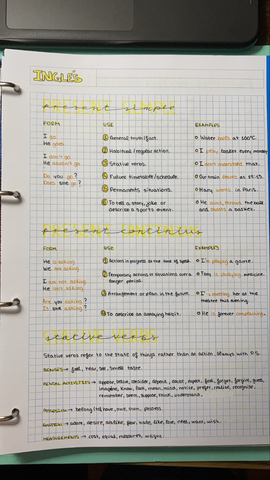 INGLÉS
present simple
FORM USE EXAMPLES
I go.
He goes.
I don't go.
He doesn't go.
Do you go?
Does she go?
1 General truth/fact.
2 Habitual/regular action.
3 Stative verbs.
4 Future timetable/schedule.
5 Permanents situations.
6 To tell a story, joke or
describe a sports event.
Water boils at 100°C.
I play basket every monday
I don't understand that.
Germain leaves at
Mary works in Paris.
He the ball
and a basket.
present continuous
FORM USE EXAMPLES
He is asking
We are asking
I am not asking
He isn't asking.
Are you asking?
Is she asking?
1 Action in progress at the time of speech.
2 Temporary action or situations over a
longer period.
3 Arrangement or plan in the future.
4 To describe an annoying habit.
I'm playing a game.
Tony is studying medicine.
I'm meeting her at the
theatre this evening.
He is forever complaining.
stative verbs
Stative verbs refer to the state of things rather than an action. Always with P.S.
SENSES → feel, hear, see, smell, taste
MENTAL ACTIVITIES → appear, believe, consider, depend, doubt, expect, find, forget, forgive, guess,
imagine, know, look, mean, mind, notice, prefer, realise, recognise,
remember, seem, suppose, trust, understand,
POSSESSION → belong (to), have, own, posses.
EMOTION → adore, desire, dislike, fear, hate, like, love, need, want, wish.
MEASUREMENTS → cost, equal, measure, weight.